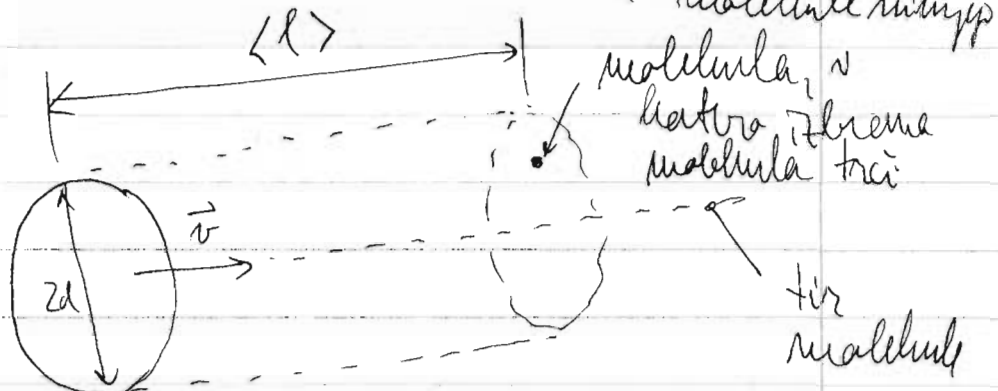 ⟨l⟩
molekule mirujejo
molekula, v
katero izbrana
molekula trči
v⃗
2d
tir
molekule